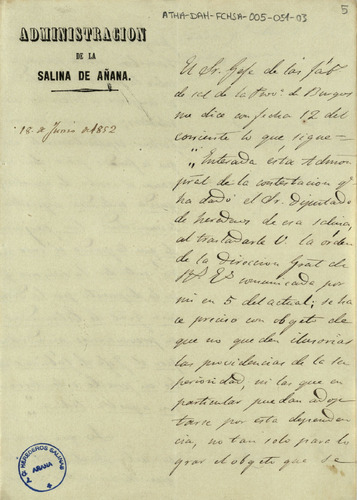 ATHA-DAH-FCHSA-005-051-03
5
ADMINISTRACION
DE LA
SALINA DE AÑANA.
18 de Junio de 1852
El Sr. Gefe de las fáb.s
de sal de la Prov.a de Burgos
me dice con fecha 12 del
corriente lo que sigue=
"Enterada esta Admon
pral de la contestacion q.e
ha dado el Sr. Diputado
de herederos de esa salina,
al trasladarle V. la órden
de la Direccion Gral de
R.s E.s comunicada por
mi en 5 del actual; se ha
ce preciso con objeto de
que no queden ilusorias
las providencias de la su
perioridad, ni las que en
particular puedan adop
tarse por esta dependen
cia, no tan solo para lo
grar el objeto que se
HEREDEROS SALINAS
AÑANA